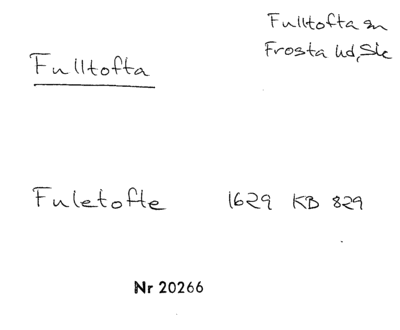 Fulltofta sn
Frosta hd, Sk
Fulltofta
Fuletofte 1629 KB 829
Nr 20266